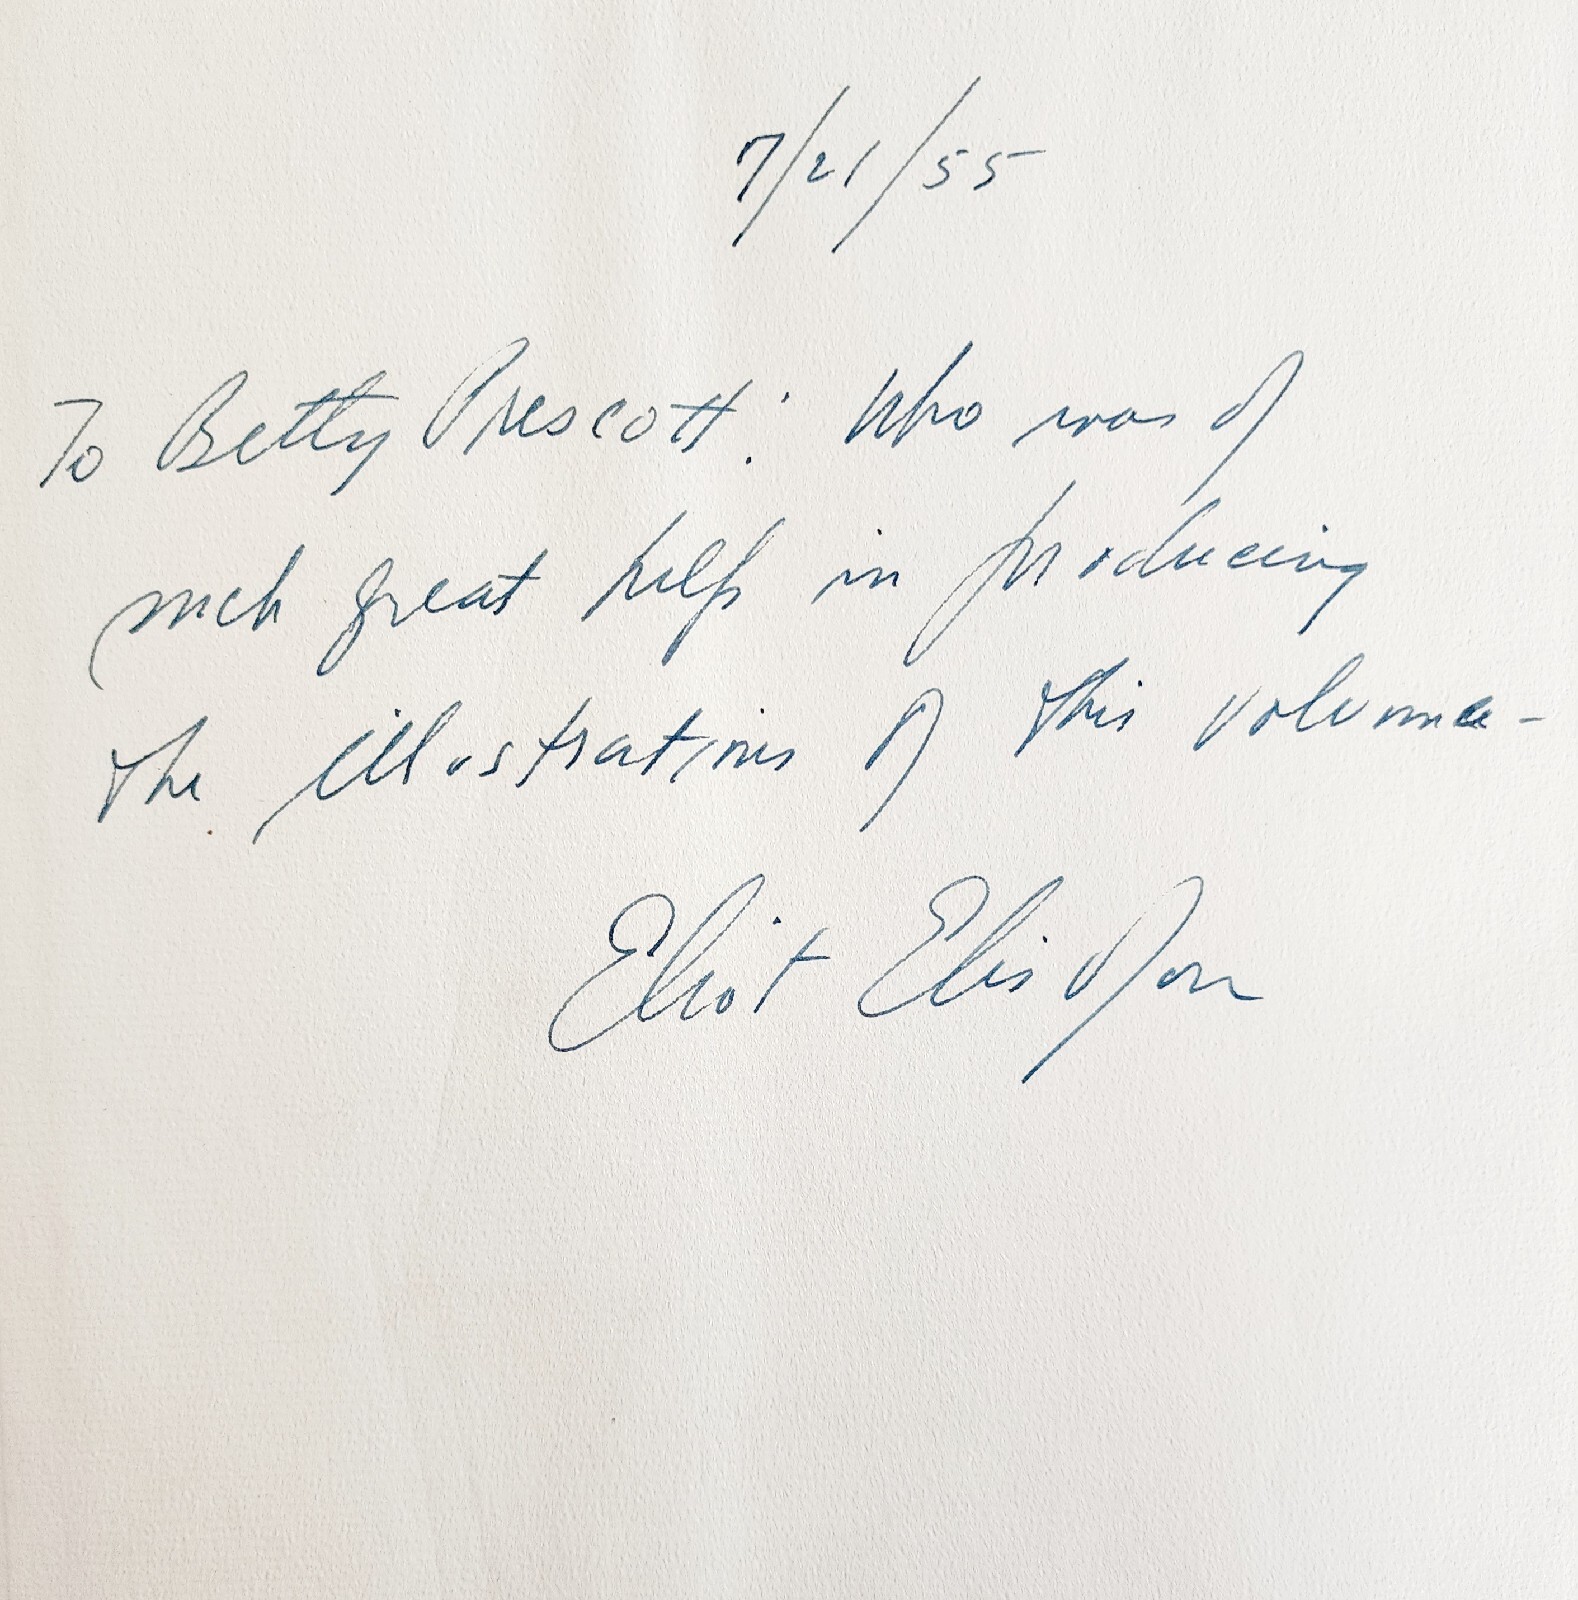 7/21/55
To Betty Prescott: who was of
such great help in producing
the illustrations of this volume -
Eliot Elisofon